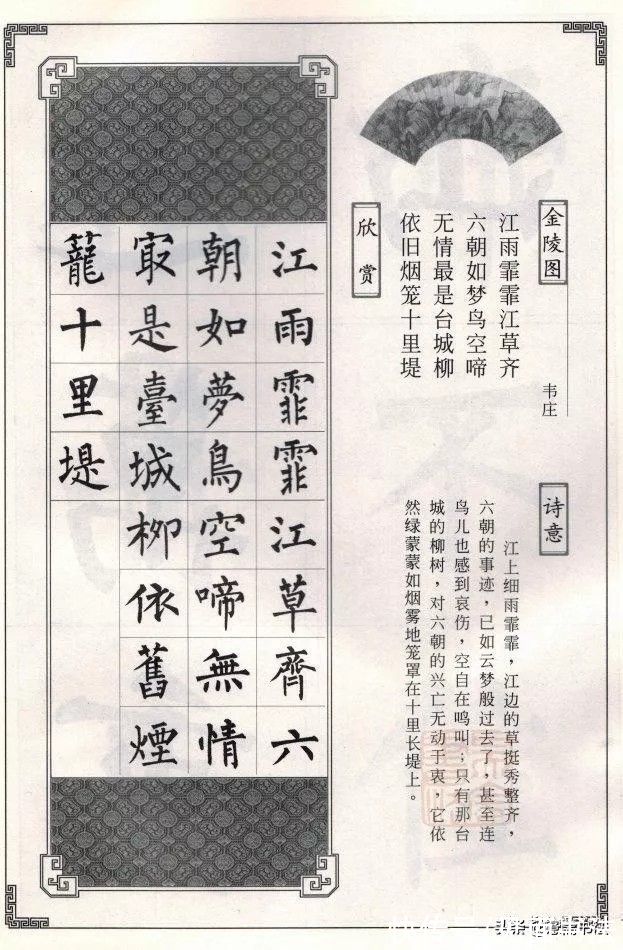 金陵图
韦庄
江雨霏霏江草齐
六朝如梦鸟空啼
无情最是台城柳
依旧烟笼十里堤
欣赏
诗意
江上细雨霏霏，江边的草挺秀整齐，
六朝的事迹，已如云梦般过去了，甚至连
鸟儿也感到哀伤，空自在鸣叫；只有那台
城的柳树，对六朝的兴亡无动于衷，它依
然绿蒙蒙如烟雾地笼罩在十里长堤上。
江雨霏霏江草齊六
朝如夢鳥空啼無情
冣是臺城柳依舊煙
籠十里堤